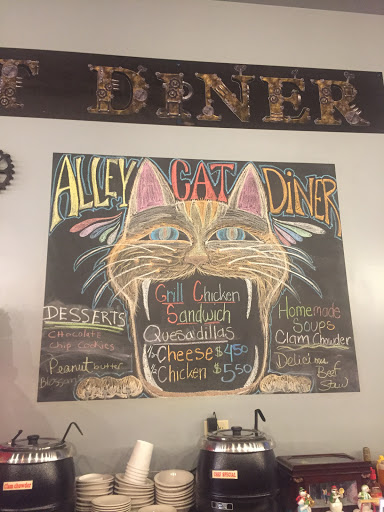 T DINER
ALLEY CAT DINER
Grill Chicken
Sandwich
Quesadillas
1/2 Cheese $4.50
1/2 Chicken $5.50
DESSERTS
Chocolate
Chip Cookies
Peanut butter
Blossoms
Homemade
Soups
Clam Chowder
Delicious
Beef
Stew
Clam chowder